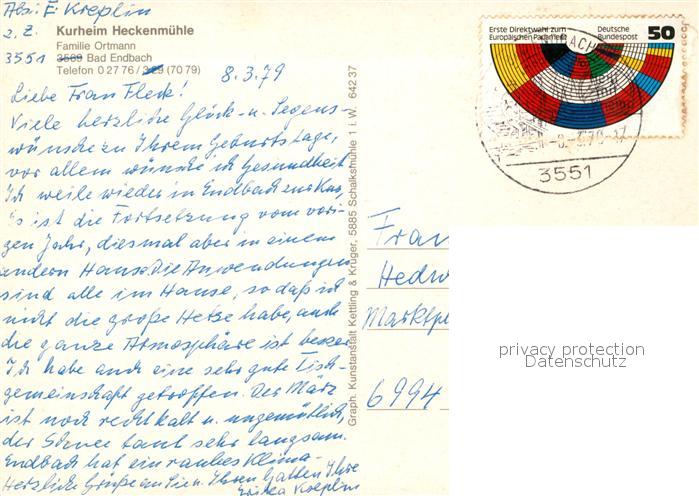 Abs: E. Kreplin
z. Z. Kurheim Heckenmühle
Familie Ortmann
3551 3569 Bad Endbach
Telefon 0 27 76 / (70 79)
8.3.79
Liebe Frau Fleck!
Viele herzliche Glück- u. Segens-
wünsche zu Ihrem Geburtstage,
vor allem wünsche ich Gesundheit
Ich weile wieder in Endbach zur Kur,
es ist die Fortsetzung vom vori-
gen Jahr, diesmal aber in einem
andern Hause. Die Anwendungen
sind alle im Hause, so daß ich
nicht die große Hetze habe, auch
die ganze Atmosphäre ist besser
Ich habe auch eine sehr gute Tisch-
gemeinschaft getroffen. Der März
ist noch recht kalt u. ungemütlich,
der Schnee taut sehr langsam.
Endbach hat ein rauhes Klima.
Herzliche Grüße an Sie u. Ihren Gatten Ihre
Erika Kreplin
Graph. Kunstanstalt Kettling & Krüger, 5885 Schalksmühle 1 i. W. 642 37
Erste Direktwahl zum
Europäischen Parlament
Deutsche
Bundespost
50
3551
Frau
Hedw
Marktpl
6994
privacy protection
Datenschutz